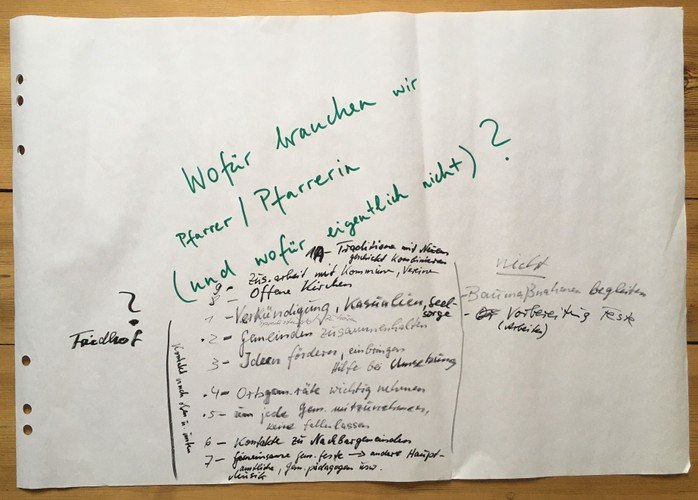 Wofür brauchen wir
Pfarrer / Pfarrerin
(und wofür eigentlich nicht)?
1A - Traditionen mit Neuem
geschickt kombinieren
9 - Zus.arbeit mit Kommunen, Vereine
8 - Offene Kirchen
1 - Verkündigung, Kasualien, Seel-
sorge
.2 - Gemeinden zusammenhalten
3 - Ideen fördern, einbringen
Hilfe bei Umsetzung
.4 - Ortsgem.räte wichtig nehmen
.5 - um jede Gem. mitzunehmen,
keine fallenlassen
6 - Kontakte zu Nachbargemeinden
7 - Gemeinsame Gem.feste → andere Haupt-
amtliche, Gem.pädagogen usw.
Musik
?
Friedhof
Kontakt nach oben u. unten
nicht
- Baumaßnahmen begleiten
- Vorbereitung Feste
(Arbeiten)